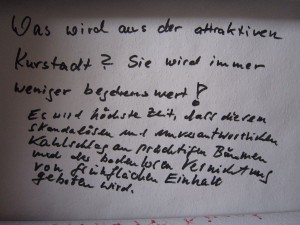 Was wird aus der attraktiven
Kurstadt? Sie wird immer
weniger begehrenswert!
Es wird höchste Zeit, dass diesem
skandalösen und unverantwortlichen
Kahlschlag an prächtigen Bäumen
und der bodenlosen Vernichtung
von Grünflächen Einhalt
geboten wird.